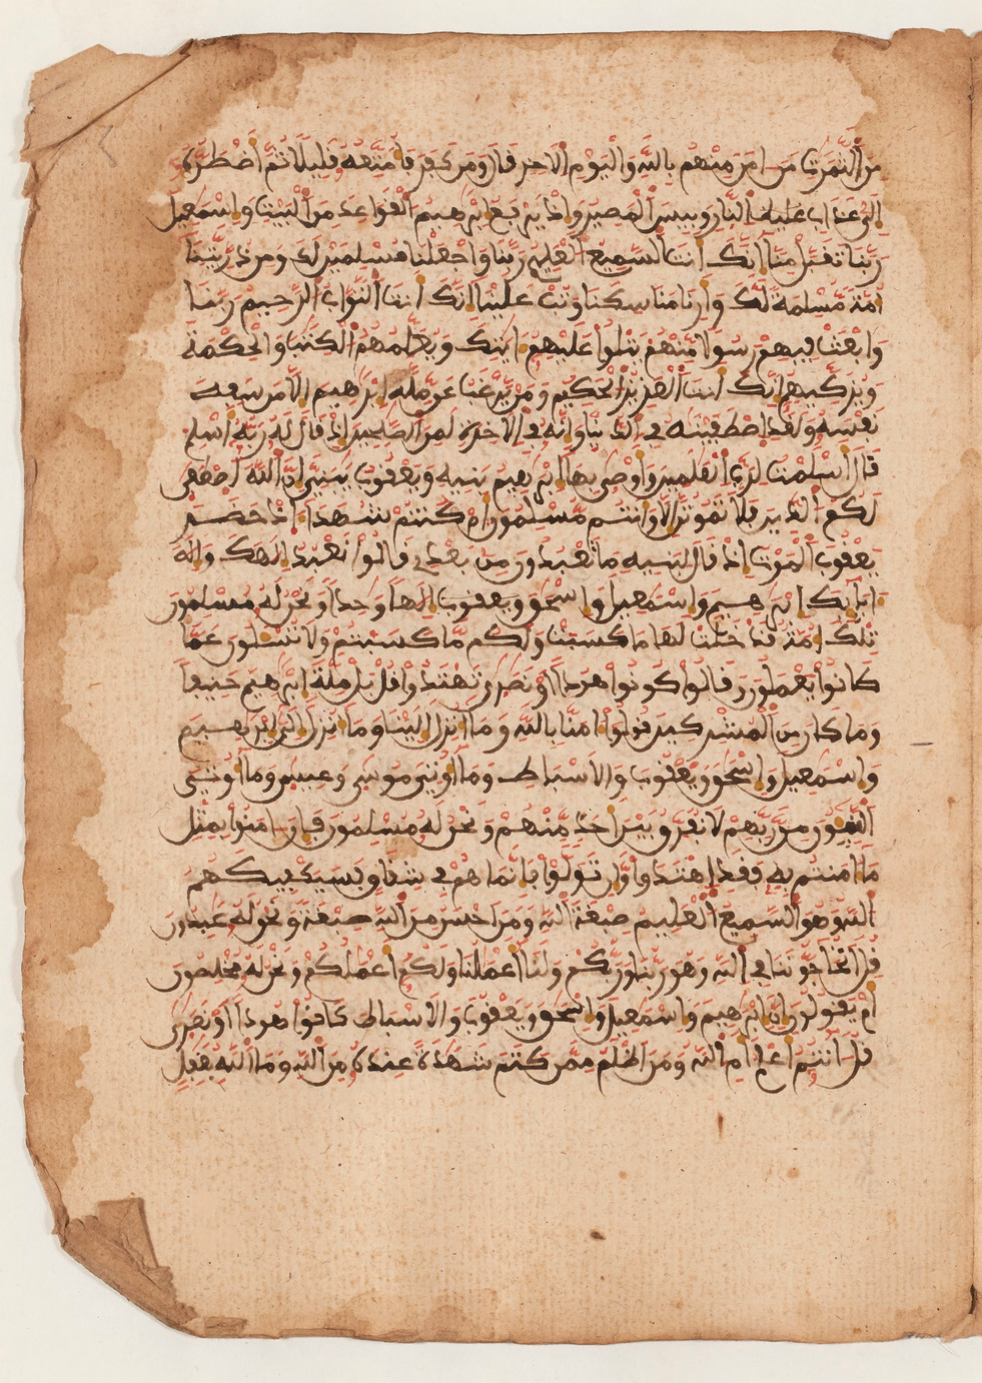 مِنَ ٱلثَّمَرَٰتِ مَنَ اٰمَنَ مِنْهُم بِاللَّهِ وَالْيَوْمِ الَاخِرِ قَالَ وَمَن كَفَرَ فَأُمَتِّعُهُۥ قَلِيلًا ثُمَّ أَضْطَرُّهُۥٓ
إِلَىٰ عَذَابِ ٱلنَّارِ وَبِيسَ ٱلْمَصِيرُ وَإِذْ يَرْفَعُ إِبْرَٰهِيمُ ٱلْقَوَاعِدَ مِنَ ٱلْبَيْتِ وَإِسْمَٰعِيلُ
رَبَّنَا تَقَبَّلْ مِنَّآ إِنَّكَ أَنتَ ٱلسَّمِيعُ ٱلْعَلِيمُ رَبَّنَا وَاجْعَلْنَا مُسْلِمَيْنِ لَكَ وَمِن ذُرِّيَّتِنَآ
أُمَّةً مُّسْلِمَةً لَّكَ وَأَرِنَا مَنَاسِكَنَا وَتُبْ عَلَيْنَآ إِنَّكَ أَنتَ ٱلتَّوَّابُ ٱلرَّحِيمُ رَبَّنَا
وَابْعَثْ فِيهِمْ رَسُولًا مِّنْهُمْ يَتْلُوا۟ عَلَيْهِمُۥٓ ءَايَٰتِكَ وَيُعَلِّمُهُمُ ٱلْكِتَٰبَ وَالْحِكْمَةَ
وَيُزَكِّيهِمُۥٓ إِنَّكَ أَنتَ ٱلْعَزِيزُ ٱلْحَكِيمُ وَمَنْ يَّرْغَبُ عَن مِّلَّةِ إِبْرَٰهِيمَ إِلَّا مَن سَفِهَ
نَفْسَهُۥ وَلَقَدِ اِصْطَفَيْنَٰهُ فِي ٱلدُّنْيَا وَإِنَّهُۥ فِي ٱلَاخِرَةِ لَمِنَ ٱلصَّٰلِحِينَ إِذْ قَالَ لَهُۥ رَبُّهُۥٓ أَسْلِمْ
قَالَ أَسْلَمْتُ لِرَبِّ ٱلْعَٰلَمِينَ وَأَوْصَىٰ بِهَآ إِبْرَٰهِيمُ بَنِيهِ وَيَعْقُوبُ يَٰبَنِيَّ إِنَّ ٱللَّهَ ٱصْطَفَىٰ
لَكُمُ ٱلدِّينَ فَلَا تَمُوتُنَّ إِلَّا وَأَنتُم مُّسْلِمُونَ أَمْ كُنتُمْ شُهَدَآءَ اِذْ حَضَرَ
يَعْقُوبَ ٱلْمَوْتُ إِذْ قَالَ لِبَنِيهِ مَا تَعْبُدُونَ مِنۢ بَعْدِي قَالُوا۟ نَعْبُدُ إِلَٰهَكَ وَإِلَٰهَ
ءَابَآئِكَ إِبْرَٰهِيمَ وَإِسْمَٰعِيلَ وَإِسْحَٰقَ وَيَعْقُوبَ إِلَٰهًا وَٰحِدًا وَنَحْنُ لَهُۥ مُسْلِمُونَ
تِلْكَ أُمَّةٌ قَدْ خَلَتْ لَهَا مَا كَسَبَتْ وَلَكُم مَّا كَسَبْتُمْ وَلَا تُسْـَٔلُونَ عَمَّا
كَانُوا۟ يَعْمَلُونَ وَقَالُوا۟ كُونُوا۟ هُودًا أَوْ نَصَٰرَىٰ تَهْتَدُوا۟ قُلْ بَلْ مِلَّةَ إِبْرَٰهِيمَ حَنِيفًا
وَمَا كَانَ مِنَ ٱلْمُشْرِكِينَ قُولُوٓا۟ ءَامَنَّا بِاللَّهِ وَمَآ أُنزِلَ إِلَيْنَا وَمَآ أُنزِلَ إِلَىٰٓ إِبْرَٰهِيمَ
وَإِسْمَٰعِيلَ وَإِسْحَٰقَ وَيَعْقُوبَ وَالَاسْبَاطِ وَمَآ أُوتِيَ مُوسَىٰ وَعِيسَىٰ وَمَآ أُوتِيَ
ٱلنَّبِيٓـُٔونَ مِن رَّبِّهِمْ لَا نُفَرِّقُ بَيْنَ أَحَدٍ مِّنْهُمْ وَنَحْنُ لَهُۥ مُسْلِمُونَ فَإِنَ اٰمَنُوا۟ بِمِثْلِ
مَآ ءَامَنتُم بِهِۦ فَقَدِ اِهْتَدَوا۟ وَّإِن تَوَلَّوْا۟ فَإِنَّمَا هُمْ فِي شِقَاقٍ فَسَيَكْفِيكَهُمُ
ٱللَّهُ وَهُوَ ٱلسَّمِيعُ ٱلْعَلِيمُ صِبْغَةَ ٱللَّهِ وَمَنَ اَحْسَنُ مِنَ ٱللَّهِ صِبْغَةً وَنَحْنُ لَهُۥ عَٰبِدُونَ
قُلَ اَتُحَآجُّونَنَا فِي ٱللَّهِ وَهُوَ رَبُّنَا وَرَبُّكُمْ وَلَنَآ أَعْمَٰلُنَا وَلَكُمُۥٓ أَعْمَٰلُكُمْ وَنَحْنُ لَهُۥ مُخْلِصُونَ
أَمْ يَقُولُونَ إِنَّ إِبْرَٰهِيمَ وَإِسْمَٰعِيلَ وَإِسْحَٰقَ وَيَعْقُوبَ وَالَاسْبَاطَ كَانُوا۟ هُودًا أَوْ نَصَٰرَىٰ
قُلَ آنتُمُۥٓ أَعْلَمُ أَمِ ٱللَّهُ وَمَنَ اَظْلَمُ مِمَّن كَتَمَ شَهَٰدَةً عِندَهُۥ مِنَ ٱللَّهِ وَمَا ٱللَّهُ بِغَٰفِلٍ